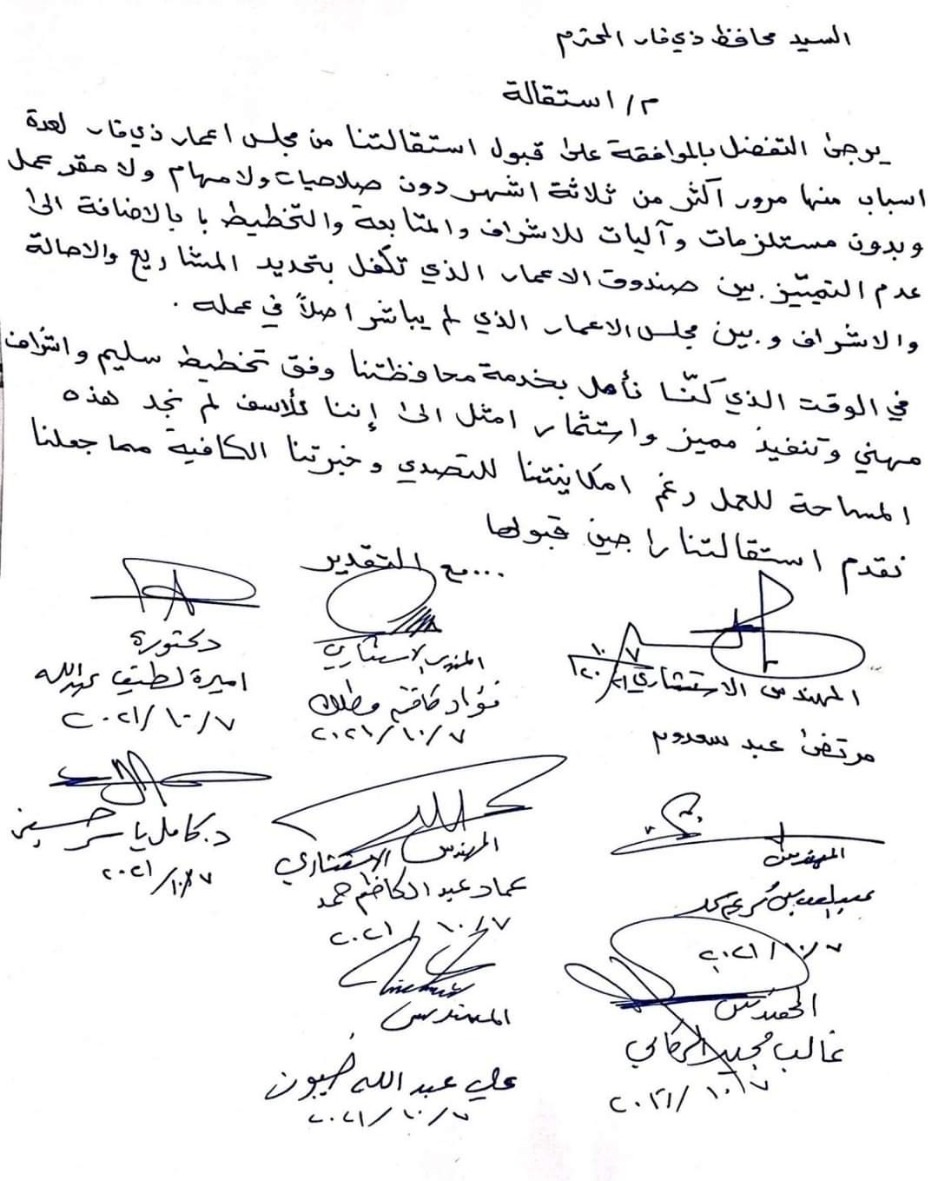 السيد محافظ ذي قار المحترم
م/ استقالة
يرجى التفضل بالموافقة على قبول استقالتنا من مجلس اعمار ذي قار لعدة
اسباب منها مرور اكثر من ثلاثة اشهر دون صلاحيات ولا مهام ولا مقر عمل
وبدون مستلزمات وآليات للاشراف والمتابعة والتخطيط با بالاضافة الى
عدم التميّيز بين صندوق الاعمار الذي تكفل بتحديد المشاريع والاحالة
والاشراف وبين مجلس الاعمار الذي لم يباشر اصلاً في عمله .
في الوقت الذي كنّا نأمل بخدمة محافظتنا وفق تخطيط سليم واشراف
مهني وتنفيذ مميز واستثمار امثل الى إننا للأسف لم نجد هذه
المساحة للعمل رغم امكانيتنا للتصدي وخبرتنا الكافية مما جعلنا
نقدم استقالتنا راجين قبولها
...مع التقدير
المهندس الاستشاري
مرتضى عبد سعدون
١٠/٧
المهندس الاستشاري
فؤاد كاظم
٢٠٢١/١٠/٧
دكتورة
اميرة لطيف عبدالله
٢٠٢١/١٠/٧
المهندس
كريم
٢٠٢١/١٠/٧
المهندس الاستشاري
عماد عبد الكاظم حمد
٢٠٢١/١٠/٧
د.كامل ياسر حسين
٢٠٢١/١٠/٧
المهندس
غالب مجيد الركابي
٢٠٢١/١٠/٧
المهندس
علي عبد الله
٢٠٢١/١٠/٧